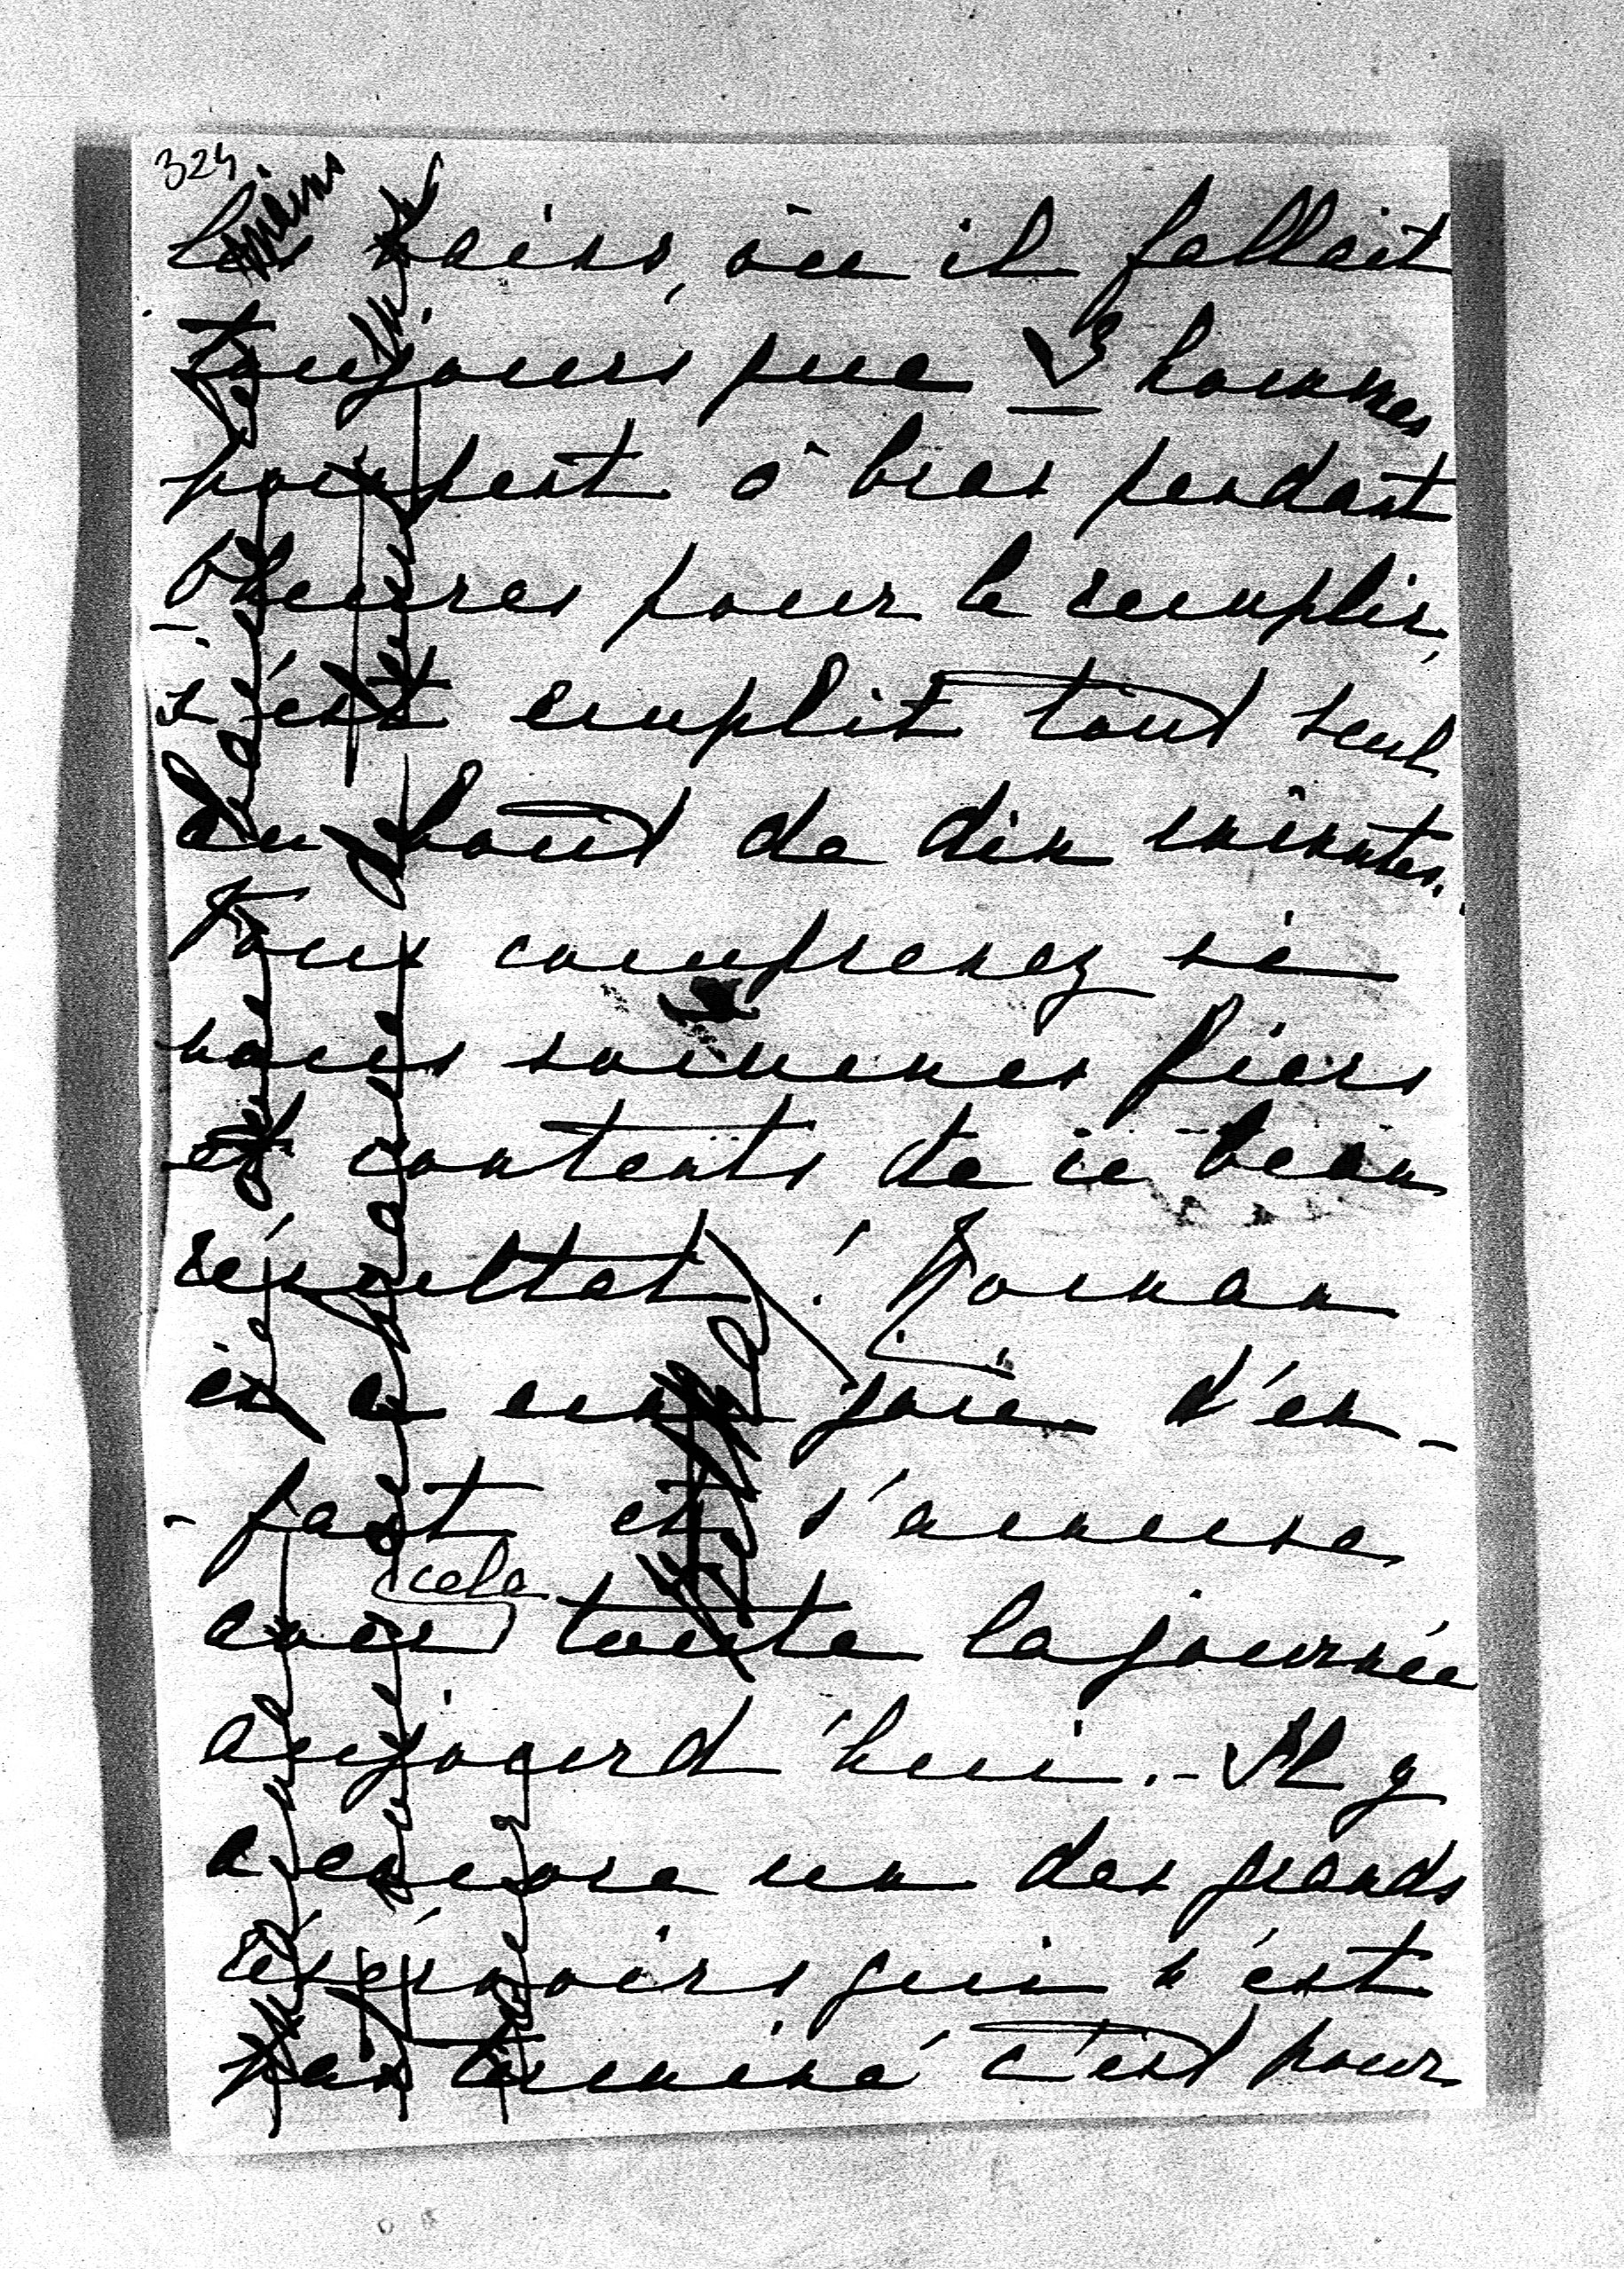 324
les bains, où il fallait
toujours que 3 hommes
pompent à bras pendant
heures pour le remplir,
s'est emplit tout seul
au bout de dix minutes.
Vous comprenez si
nous sommes fiers
et contents de ce beau
résultat!
a une joie d'en-
-fant et s'amuse
avec cela toute la journée
aujourd'hui. - Il y
a encore un des grands
réservoirs qui n'est
pas terminé c'est pour